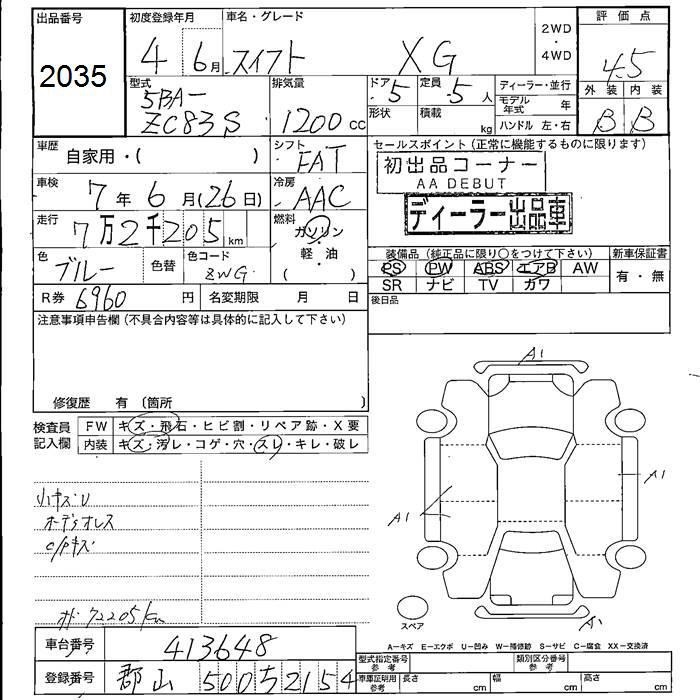 出品番号 初度登録年月 車名・グレード 2WD・4WD 評価点
2035 4 6月 スイフト XG 4.5
型式 排気量 ドア 定員 ディーラー・並行 外装 内装
5BA- 5 5人 モデル年式 年
ZC83S 1200cc 形状 積載 kg ハンドル 左・右 B B
車歴 自家用・( ) シフト FAT セールスポイント(正常に機能するものに限ります)
初出品コーナー
AA DEBUT
車検 7年6月(26日) 冷房 AAC
ディーラー出品車
走行 7万2千205km 燃料 ガソリン・軽・油 ( )
装備品(純正品に限り○をつけて下さい) 新車保証書
色 ブルー 色替 色コード ZWG PS PW ABS エアB AW 有・無
SR ナビ TV カワ
R券 6960円 名変期限 月 日 後日品
注意事項申告欄(不具合内容等は具体的に記入して下さい)
修復歴 有 (箇所 )
A1
検査員記入欄 FW キズ・飛石・ヒビ割・リペア跡・X要
内装 キズ・汚レ・コゲ・穴・スレ・キレ・破レ
A1
A1
小キズ・U
オーディオレス
C/Pキズ
メ 72205km
スペア
A1
A=キズ E=エクボ U=凹み W=補修跡 S=サビ C=腐食 XX=交換済
車台番号 413648 型式指定番号 参考 類別区分番号 参考
登録番号 郡山 500 ち 2154 車庫証明用 参考 長さ cm 幅 cm 高さ cm